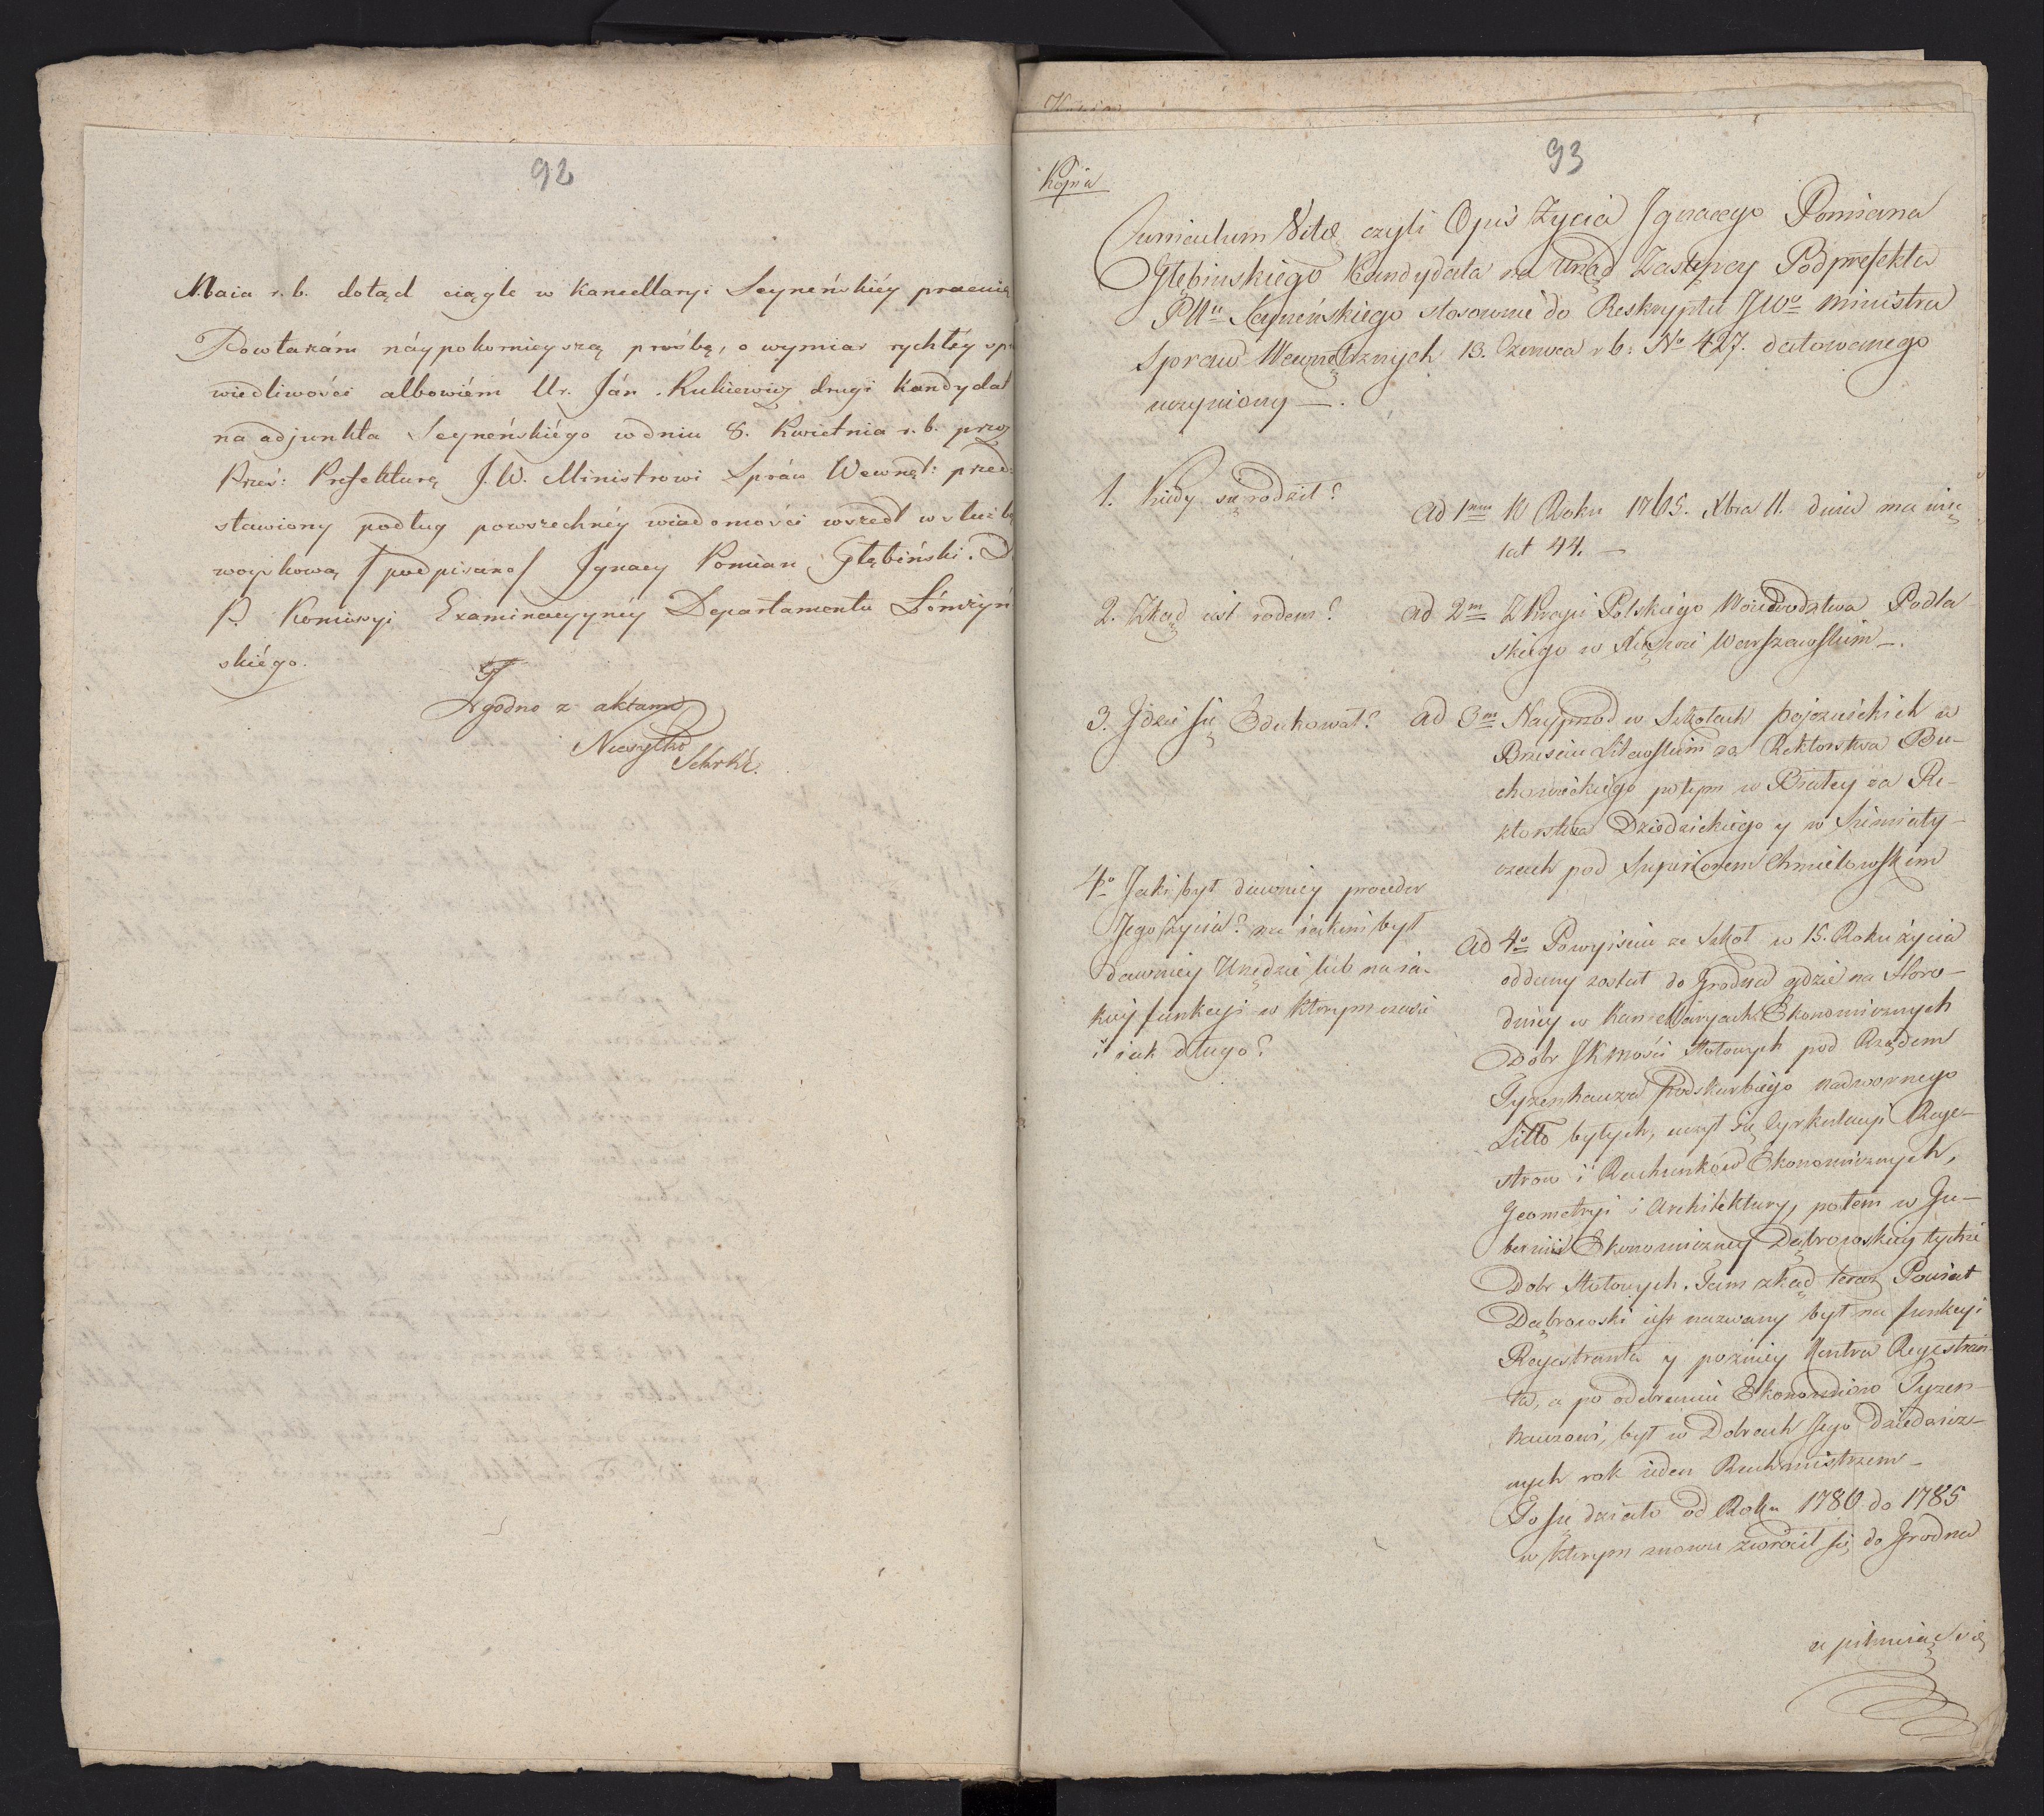 92
Maia r. b. dotąd ciągle w Kancellaryi Seyneńskiéy pracuię
Powtarzám náypokornieyszą prośbę, o wymiar rychłéy spra
wiedliwości albowiém Ur. Ján Rukiewicz drugi Kandydat
na adjunkta Seyneńskiégo w dniu 8. Kwietnia r. b. przez
Prześ: Prefekturę J. W. Ministrowi Spráw Wewnęt: przed:
stawiony podług powszechnéy wiadomości wszedł w służbę
woyskową /podpisano/ Ignacy Pomian Głębiński.
P. Komissyi Examinacyynéy Departamentu Łómżyń
skiégo.
Zgodno z aktami
Sekrkt.
93
Kopia
Curriculum Vitæ czyli Opis Życia Ignacego Pomiana
Głębinskiego Kandydata na Urząd Zastępcy Podprefekta
Pttu Seyneńskiego stosownie do Reskryptu JWo Ministra
Spraw Wewnętrznych 13. Czerwca r b: No 427. datowanego
uczyniony —.
1. Kiedy się rodził?
ad 1mm W Roku 1765. Xbra 11. dnia ma więc
lat 44. —
2. Zkąd iest rodem?
ad 2m Z Kraju Polskiego Woiewodztwa Podla
skiego w Xięstwie Warszawskim —.
3. Gdzie się Edukował?
ad 3m Nayprzod w Szkołach pojezuickich w
Brześciu Litewskim za Rektorstwa Bu-
chowieckiego potym w Białey za Re-
ktorstwa Dziedzickiego y w Siemiaty-
czach pod Superiorem Chmielewskim
4o Jaki był dawniey proceder
Jego Życia? na iakim był
dawniey Urzędzie lub na ia-
kiey funkcyi w ktorym czasie
i iak długo?
ad 4o Po wyisciu ze Szkoł w 15. Roku życia
oddany został do Grodna gdzie na Horo-
dnicy w Kancellaryach Ekonomicznych
Dobr JKMości Stołowych pod Rządem
Tyzenhauza Podskarbiego nadwornego
Litto byłych, uczył się Cyrkulacyi Reje-
strow i Rachunków Ekonomicznych,
Geometryi i Architektury, potem w Gu-
bernii Ekonomiczney Dąbrowskiey tychże
Dobr Stołowych. Tam zkąd teraz Powiat
Dąbrowski iest nazwany był na funkcyi
Rejestranta y pozniey Kontra Rejestran-
ta, a po odebraniu Ekonomiow Tyzen-
hauzowi, był w Dobrach Jego Dziedzicz-
nych rok ieden Rachmistrzem —
To się działo od Roku 1780 do 1785
w ktorym znowu zwrócił się do Grodna
a pilnuiąc się